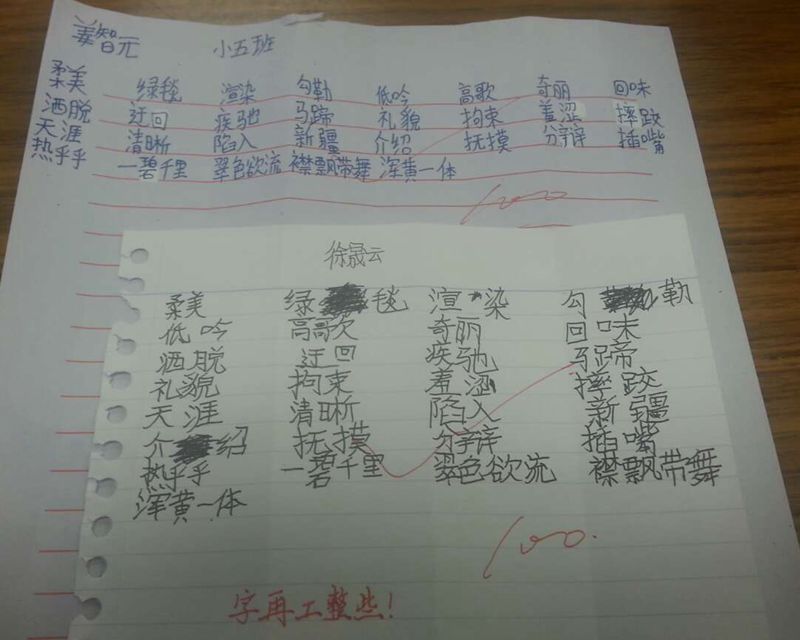 姜智元 小五班
柔美 绿毯 渲染 勾勒 低吟 高歌 奇丽 回味
洒脱 迂回 疾驰 马蹄 礼貌 拘束 羞涩 摔跤
天涯 清晰 陷入 新疆 介绍 抚摸 分辩 插嘴
热乎乎 一碧千里 翠色欲流 襟飘带舞 浑黄一体
100
徐晟云
柔美 绿毯 渲染 勾勒
低吟 高歌 奇丽 回味
洒脱 迂回 疾驰 马蹄
礼貌 拘束 羞涩 摔跤
天涯 清晰 陷入 新疆
介绍 抚摸 分辩 插嘴
热乎乎 一碧千里 翠色欲流 襟飘带舞
浑黄一体
100.
字再工整些!